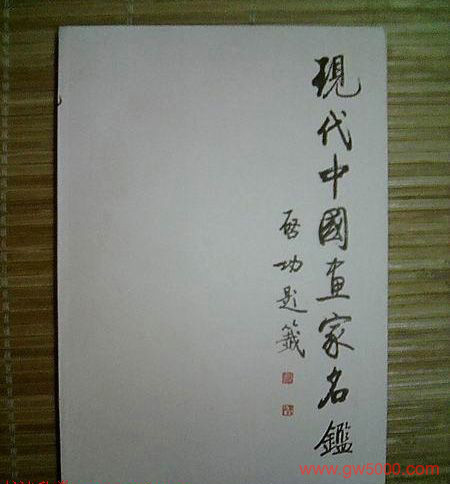 現代中國画家名鑑
啓功題籤
www.gw5000.com